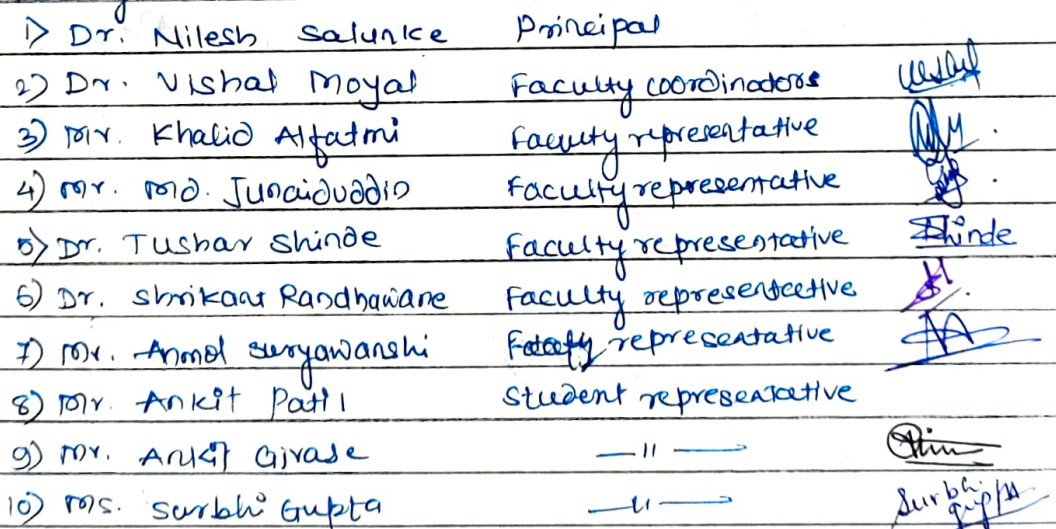 1) Dr. Nilesh Salunke Principal
2) Dr. Vishal Moyal Faculty coordinators
3) Mr. Khalid Alfatmi Faculty representative
4) Mr. Md. Junaiduddin Faculty representative
5) Dr. Tushar Shinde Faculty representative Shinde
6) Dr. Shrikant Randhawane Faculty representative
7) Mr. Anmol Suryawanshi representative
8) Mr. Ankit Patil Student representative
9) Mr. Ankit Girase —"—
10) Ms. Surbhi Gupta —"— Surbhi Gupta